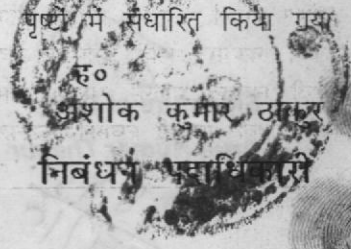 पृष्टों में संधारित किया गया
ह०
अशोक कुमार ठाकुर
निबंधन पदाधिकारी